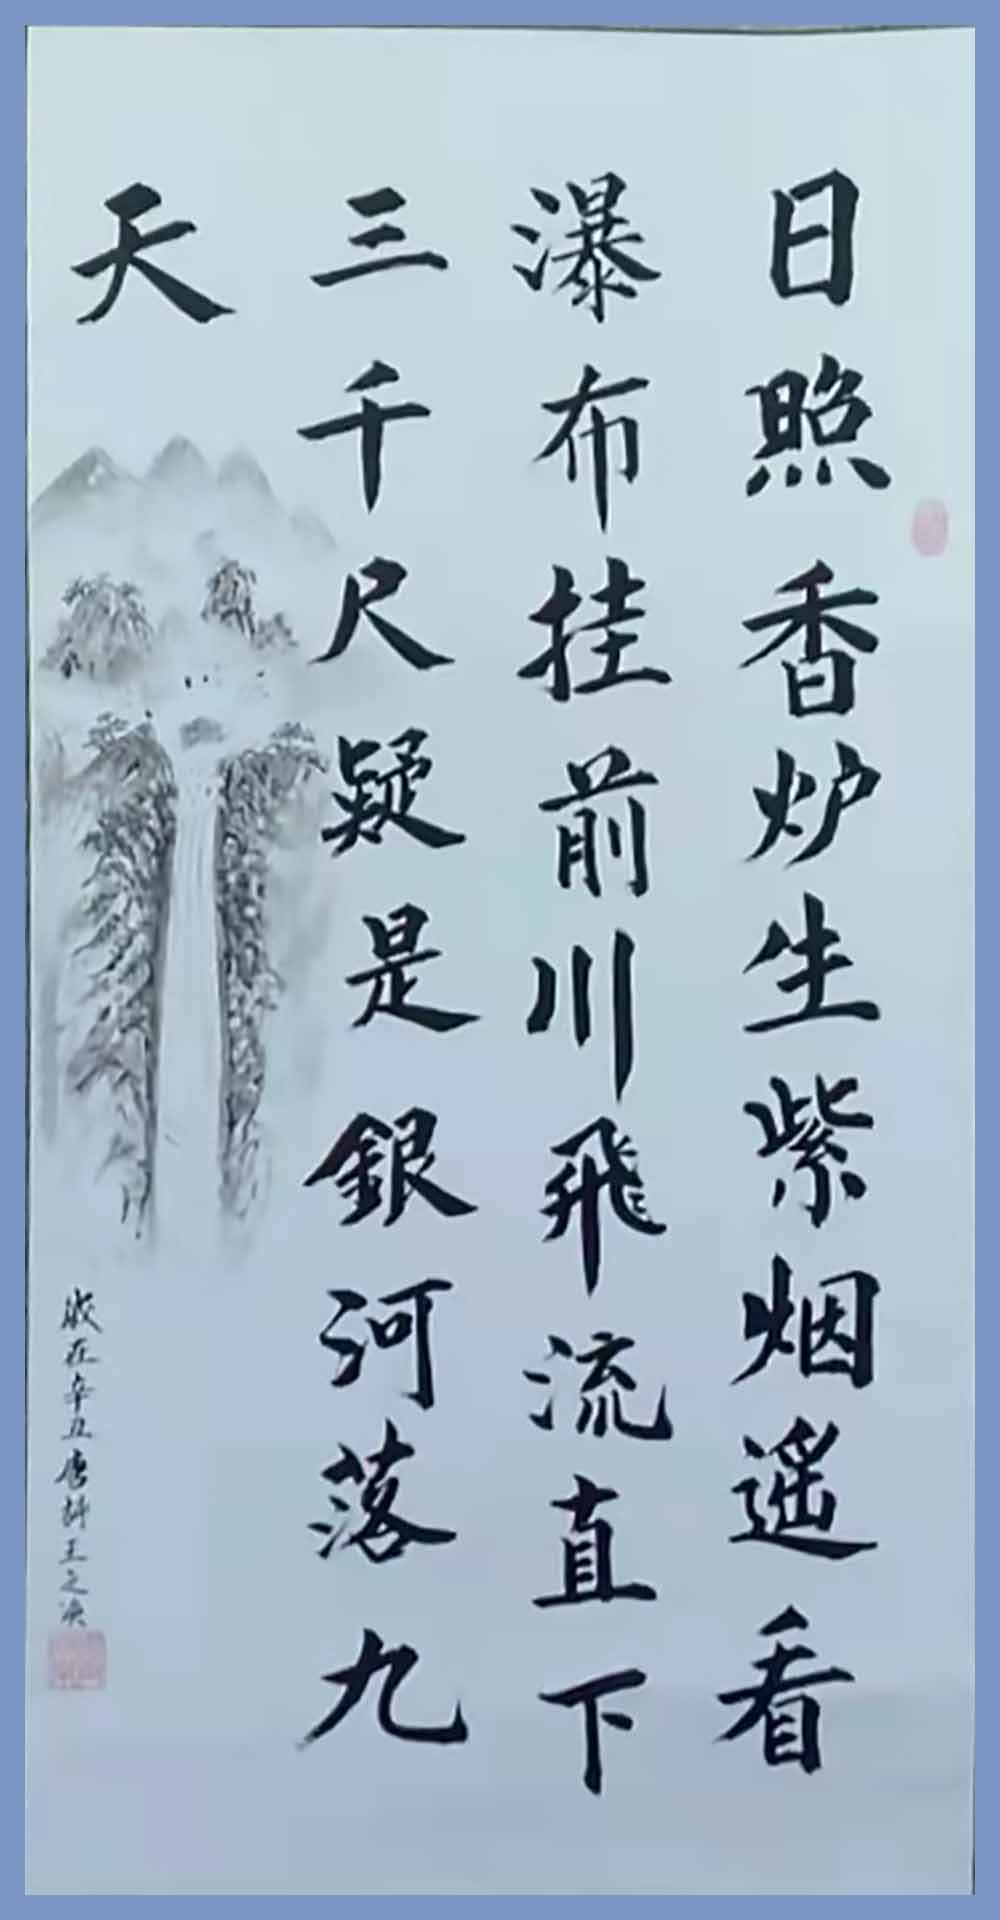 日照香炉生紫烟遥看
瀑布挂前川飛流直下
三千尺疑是銀河落九
天
在辛丑唐王之